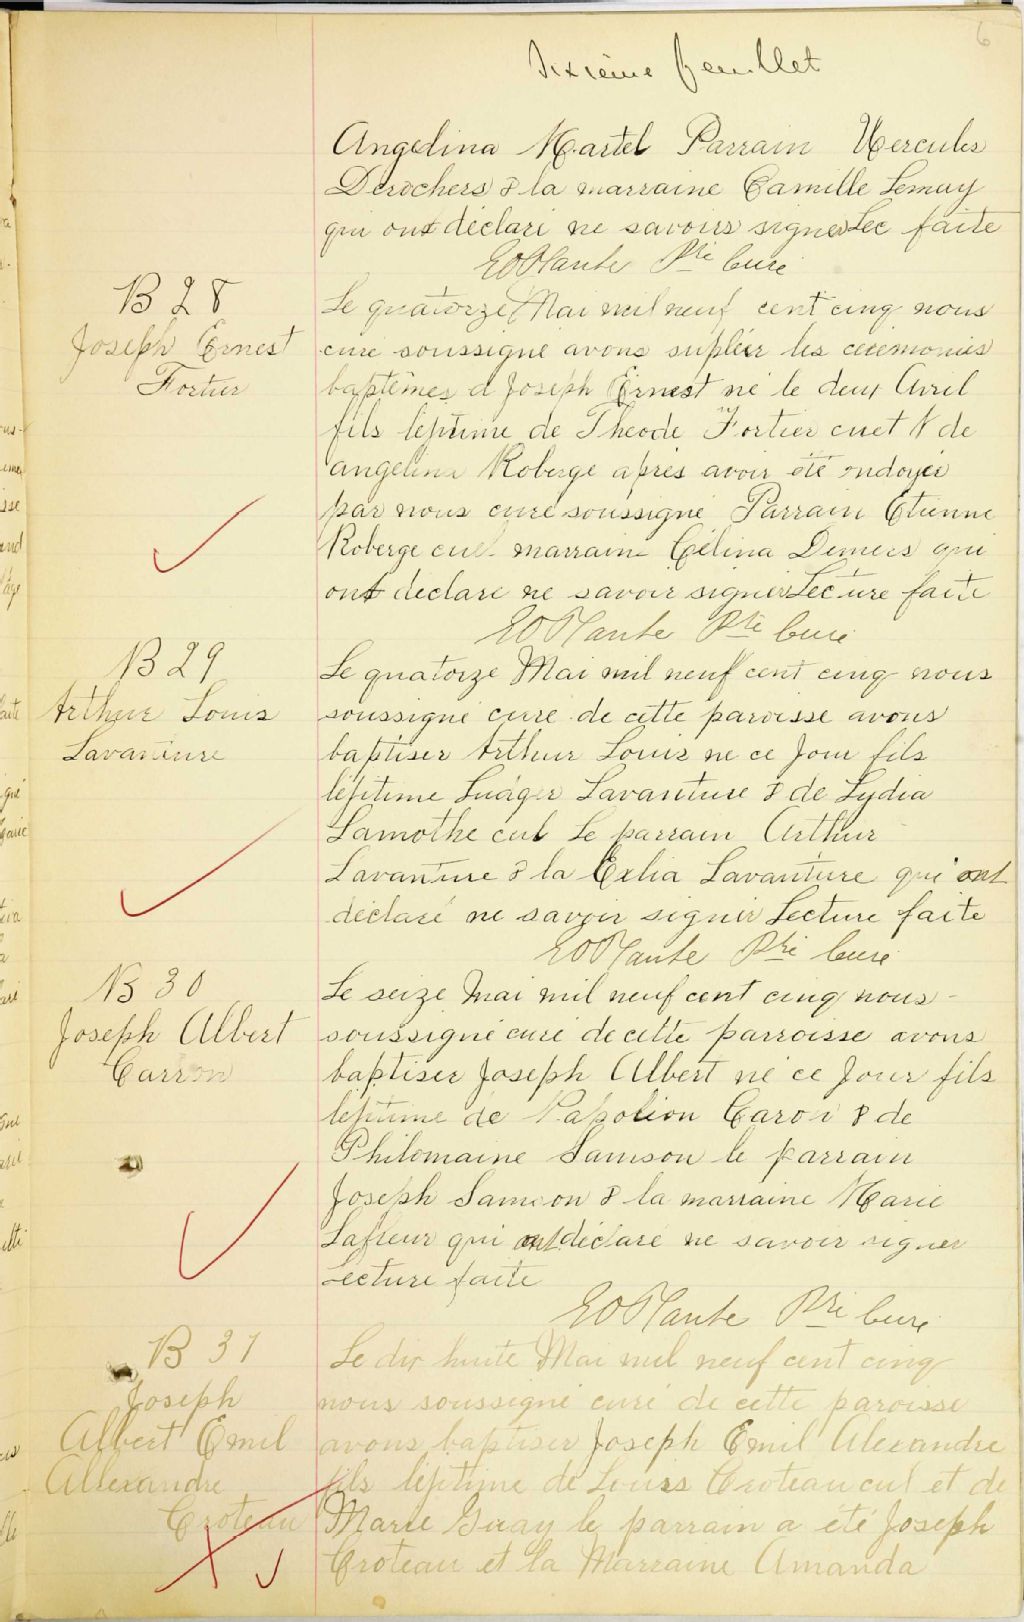 6
Sixième feuillet
Angelina Martel Parrain Hercules
Derochers & la marraine Camille Lemay
qui ont déclaré ne savoirs signer Lec faite
EO Plante Ptre Curé
B 28
Joseph Ernest
Fortier
Le quatorze Mai mil neuf cent cinq nous
curé soussigné avons supléer les cérémonies
baptêmes a Joseph Ernest né le deux Avril
fils légitime de Theode Fortier cult & de
angelina Roberge après avoir été ondoyée
par nous curé soussigné Parrain Etienne
Roberge cul marraine Célina Demers qui
ont déclaré ne savoir signer Lecture faite
EO Plante Ptre Curé
B 29
Arthur Louis
Lavanture
Le quatorze Mai mil neuf cent cinq nous
soussigné curé de cette paroisse avons
baptiser Arthur Louis ne ce Jour fils
légitime Luáger Lavanture & de Lydia
Lamothe cul Le parrain Arthur
Lavanture & la Exlia Lavanture qui ont
déclaré ne savoir signer Lecture faite
EO Plante Ptre Curé
B 30
Joseph Albert
Carron
Le seize Mai mil neuf cent cinq nous
soussigné curé de cette parroisse avons
baptiser Joseph Albert né ce Jour fils
légitime de Napolion Caron & de
Philomaine Samson le parrain
Joseph Samson & la marraine Marie
Lafleur qui ont déclaré ne savoir signer
Lecture faite
EO Plante Ptre Curé
B 31
Joseph
Albert Emil
Allexandre
Croteau
Le dix huite Mai mil neuf cent cinq
nous soussigné curé de cette paroisse
avons baptiser Joseph Emil Alexandre
fils légitime de Louis Croteau cul et de
Marie Guay le parrain a été Joseph
Croteau et la Marraine Amanda